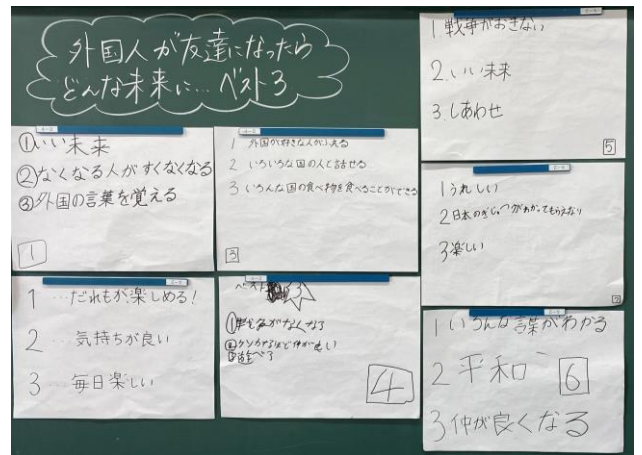 外国人が友達になったら
どんな未来に… ベスト3
①いい未来
②なくなる人がすくなくなる
③外国の言葉を覚える
1
1 外国が好きな人がふえる
2 いろいろな国の人と話せる
3 いろんな国の食べ物を食べることができる
3
1 戦争がおきない
2. いい未来
3. しあわせ
5
1 うれしい
2 日本のぎじゅつがわかってもらえたり
3 楽しい
1 …だれもが楽しめる!
2 …気持ちが良い
3 …毎日楽しい
ベスト3
①戦争がなくなる
②ケンカするほど仲が良い
③遊べる
4
1 いろんな言葉がわかる
2 平和
3 仲が良くなる
6